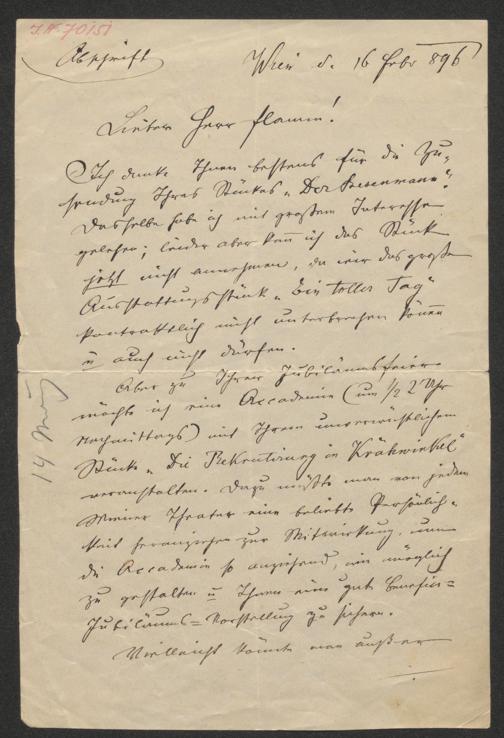 I.N. 70151
Abschrift
Wien d. 16 Febr 896
Lieber Herr Flamm!
Ich danke Ihnen bestens für die Zu-
sendung Ihres Stückes „Der
Dasselbe habe ich mit großem Interesse
gelesen; leider aber kann ich das Stück
jetzt nicht annehmen, da wir das große
Ausstattungsstück „Ein toller Tag“
kontraktlich nicht unterbrechen können
u auch nicht dürfen.
Aber zu Ihrer Jubiläumsfeier
möchte ich eine Accademie (um ½ 2 Uhr
Nachmittags) mit Ihrem unverwüstlichem
Stücke „Die Rekrutirung in Krähwinkel“
veranstalten. Dazu müßte man von jedem
Wiener Theater eine beliebte Persönlich-
keit heranziehen zur Mitwirkung, um
die Accademie so anziehend, wie möglich
zu gestalten u Ihnen eine gute Benefice-
Jubiläums-Vorstellung zu sichern.
Vielleicht könnte man außer
14 März